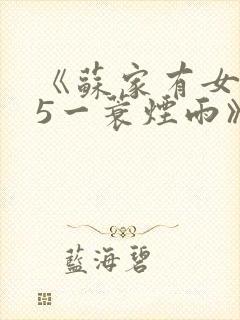 《蘇家有女
5一蓑煙雨》
藍海碧